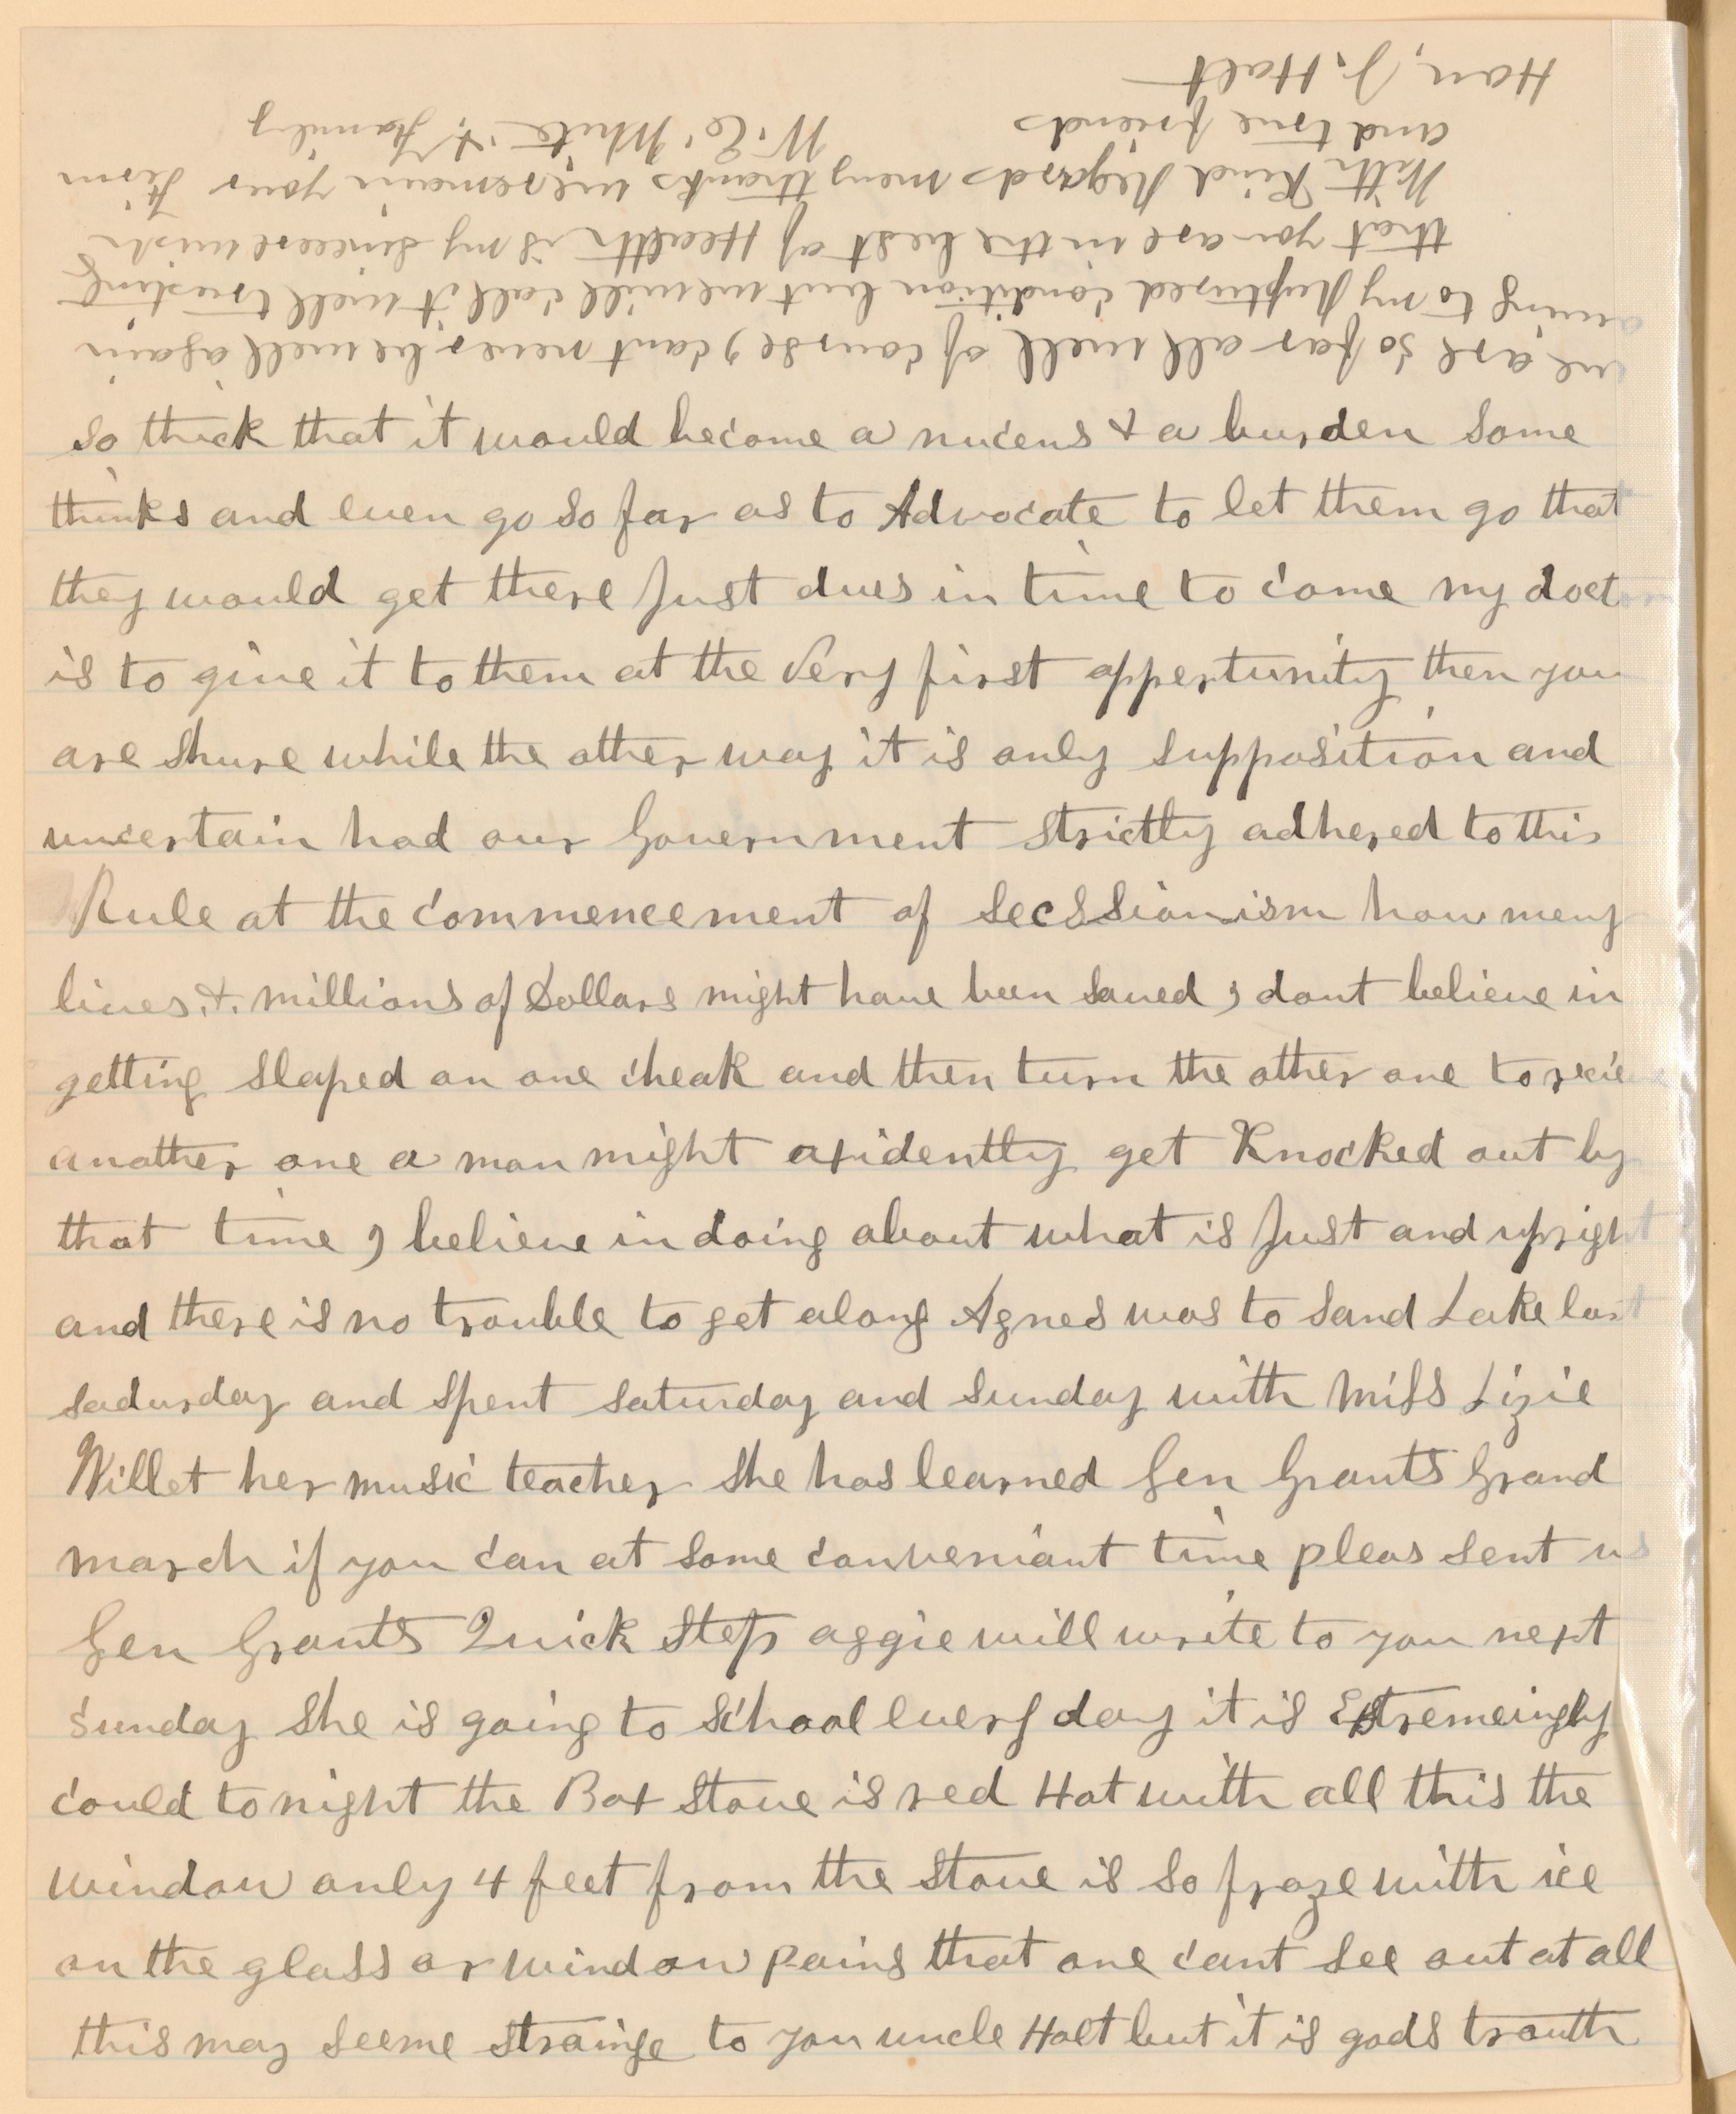 so thick that it would become a nucens & a burden some
thinks and even go so far as to Advocate to let them go that
they would get there Just dues in time to come my doct
is to give it to them at the Very first oppertunity then you
are shure while the other way it is only supposition and
uncertain had our Government strictly adhered to this
Rule at the commencement of secssionism how meny
lives & millions of Dollars might have been saved I dont believe in
getting slaped on one cheak and then turn the other one to recie
another one a man might axidently get Knocked out by
that time I believe in doing about what is Just and upright
and there is no trouble to get along Agnes was to Sand Lake last
sadurday and spent saturday and sunday with Miss Lizie
Willet her music teacher she has learned Gen Grants Grand
march if you can at some conveniant time pleas sent us
Gen Grants Quick Step aggie will write to you next
sunday she is going to school every day it is Extremeingly
could to night the Box stove is red Hot with all this the
window only 4 feet from the stove is so froze with ice
on the glass or window pains that one cant see out at all
this may seeme strainge to you uncle Holt but it is gods trouth
we are so far all well of course I cant never be well again
owing to my Ruptured condition but we will call it well trusting
that you are in the best of Health is my sincere wish
With Kind Regards meny thanks we remain your Firm
and true friends
W. E. White & Family
Hon, J. Holt